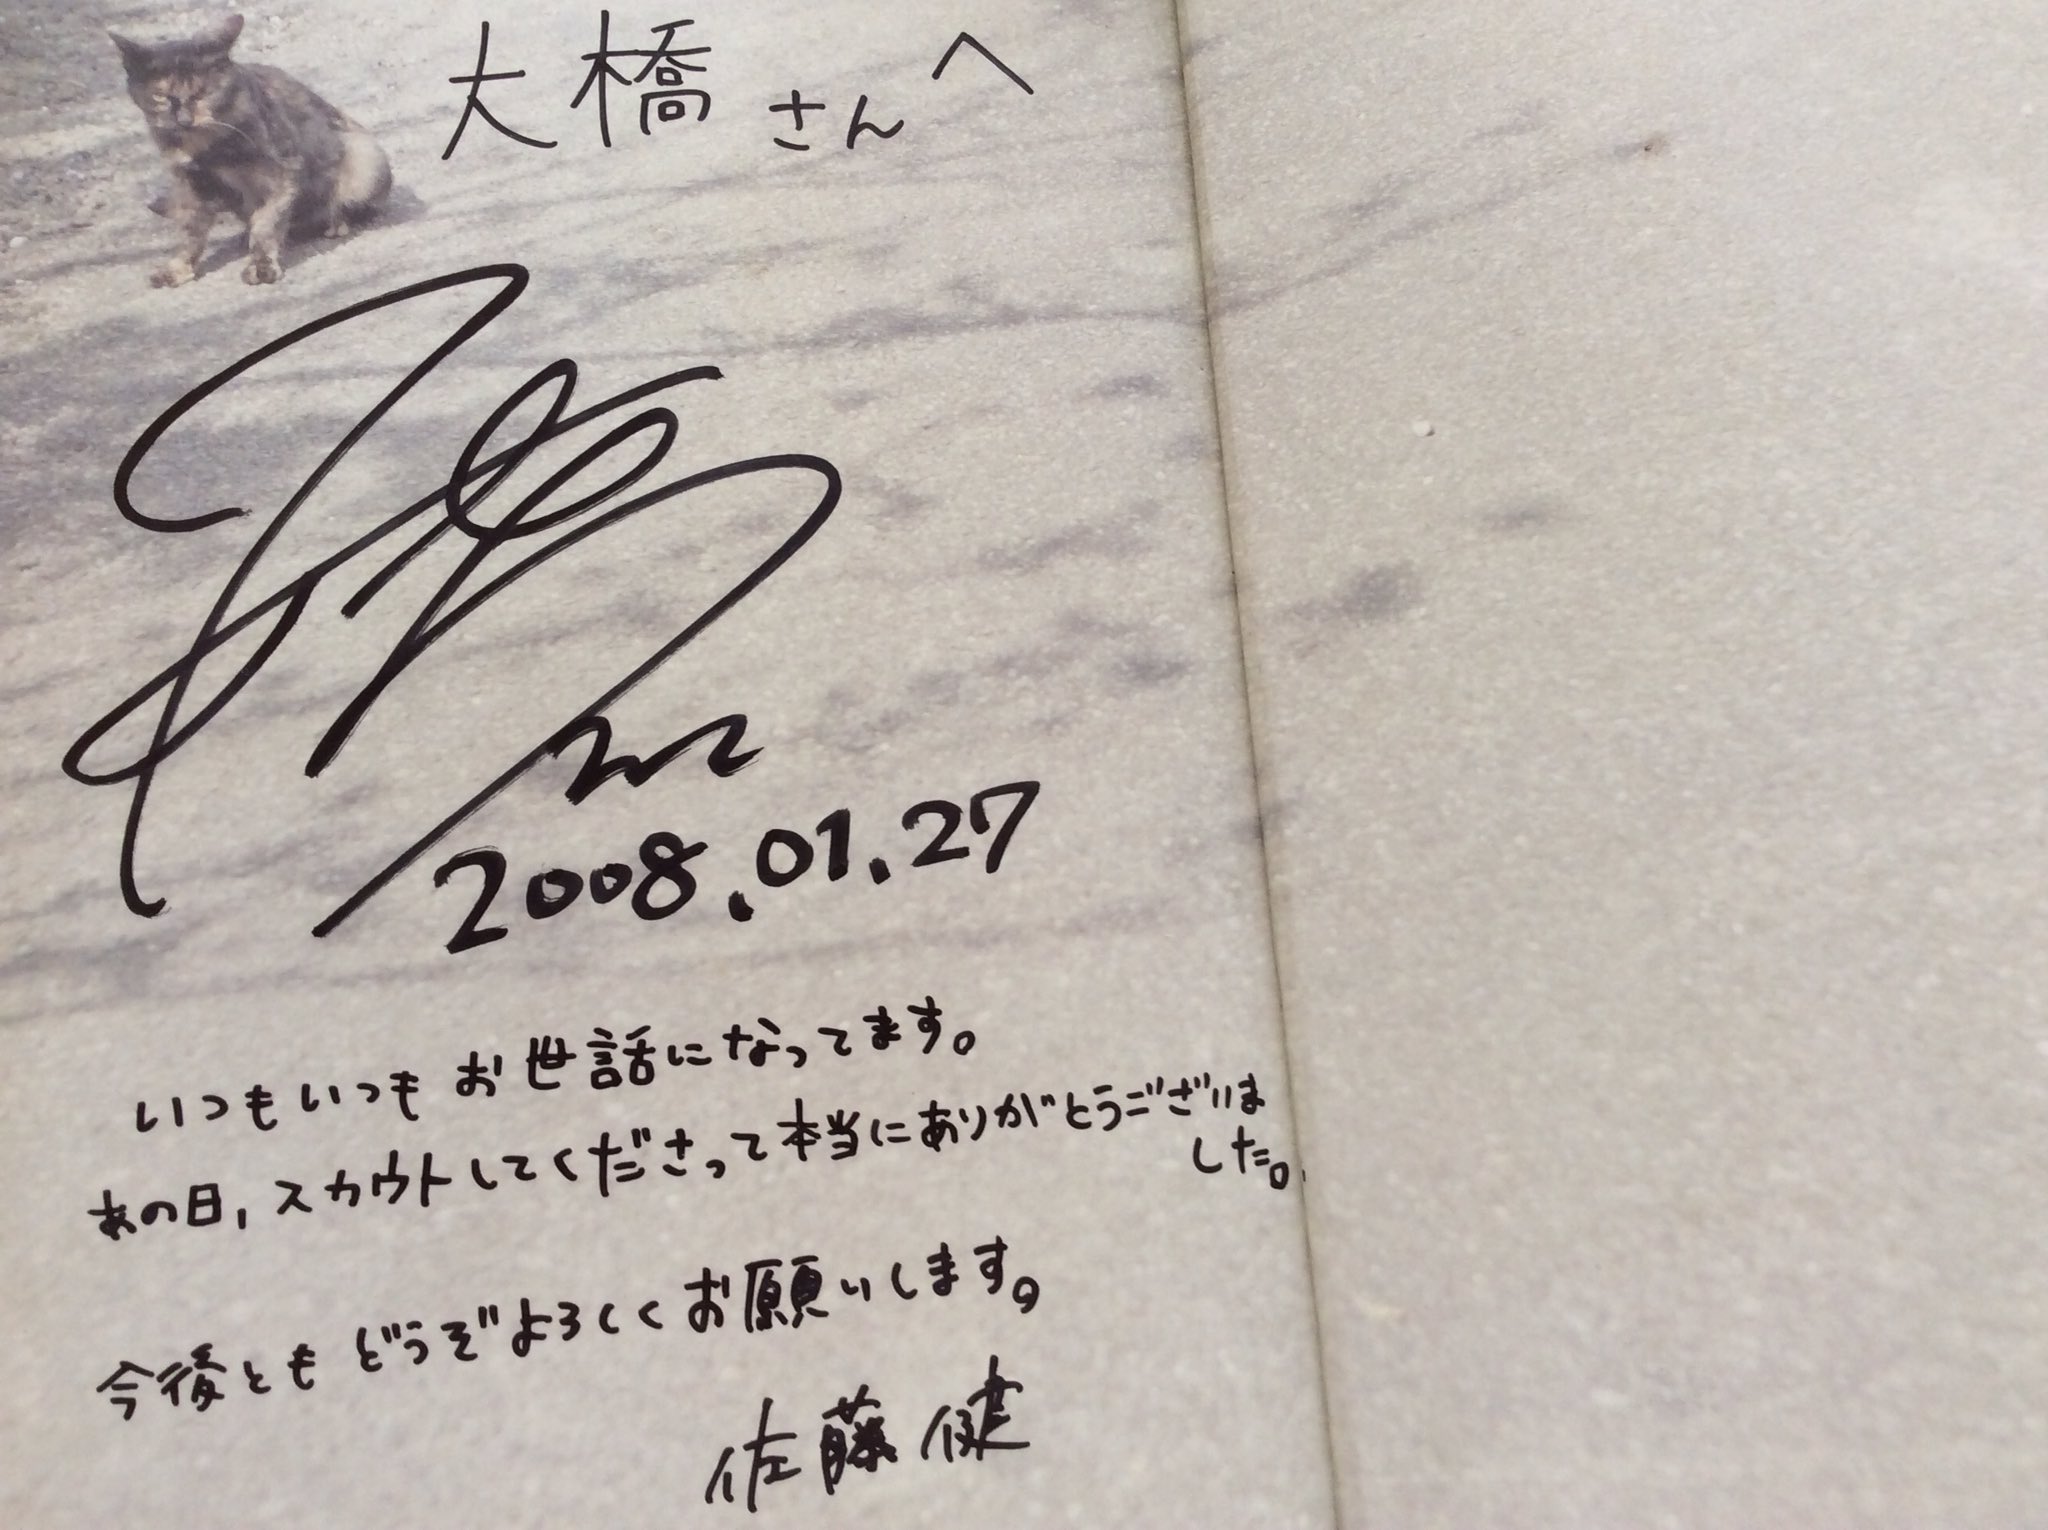 大橋さんへ
2008.01.27
いつもいつもお世話になってます。
あの日、スカウトしてくださって本当にありがとうございま
した。
今後ともどうぞよろしくお願いします。
佐藤健